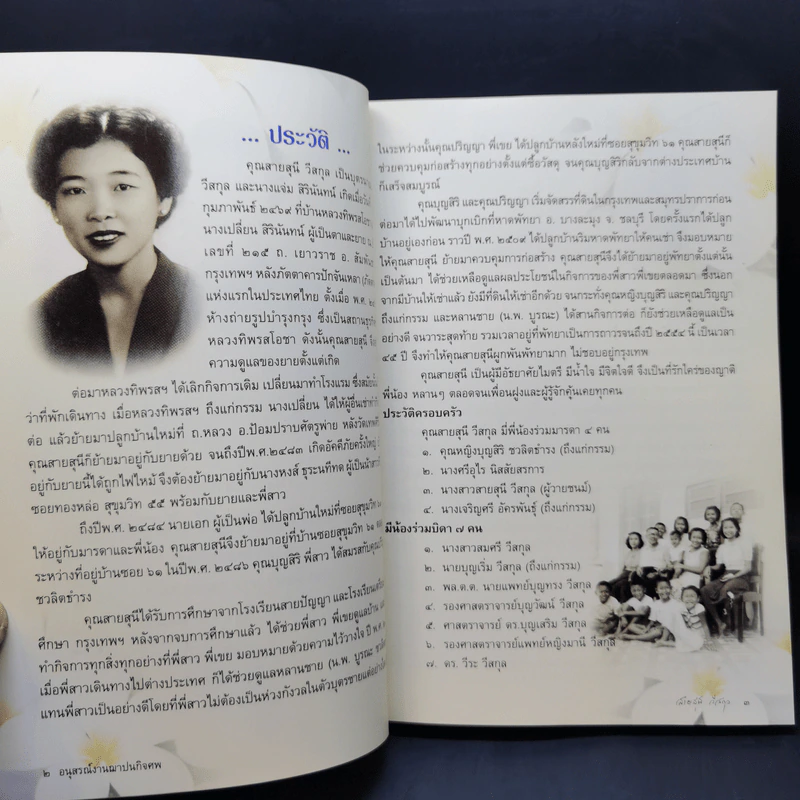 ... ประวัติ ...
คุณสายสุนี วีสกุล เป็นบุตร
วีสกุล และนางแจ่ม สิรินันทน์ เกิดเมื่อ
กุมภาพันธ์ ๒๔๖๙ ที่บ้านหลวงทิพรส
นางเปลี่ยน สิรินันทน์ ผู้เป็นตาและยาย ณ
เลขที่ ๒๑๕ ถ. เยาวราช อ. สัมพัน
กรุงเทพฯ หลังภัตตาคารปักจันเหลา
แห่งแรกในประเทศไทย ตั้งเมื่อ พ.ศ.
ห้างถ่ายรูปบำรุงกรุง ซึ่งเป็นสถาน
หลวงทิพรสโอชา ดังนั้นคุณสายสุนี
ความดูแลของยายตั้งแต่เกิด
ต่อมาหลวงทิพรสฯ ได้เลิกกิจการเดิม เปลี่ยนมาทำโรงแรม ซึ่งสมัย
ว่าที่พักเดินทาง เมื่อหลวงทิพรสฯ ถึงแก่กรรม นางเปลี่ยน ได้ให้ผู้อื่นเช่า
ต่อ แล้วย้ายมาปลูกบ้านใหม่ที่ ถ.หลวง อ.ป้อมปราบศัตรูพ่าย หลังวัด
คุณสายสุนีก็ย้ายมาอยู่กับยายด้วย จนถึงปีพ.ศ.๒๔๘๓ เกิดอัคคีภัยครั้งใหญ่
อยู่กับยายนี้ได้ถูกไฟไหม้ จึงต้องย้ายมาอยู่กับนางหงส์ ธุระนีทต ผู้เป็นน้า
ซอยทองหล่อ สุขุมวิท ๕๕ พร้อมกับยายและพี่สาว
ถึงปีพ.ศ. ๒๔๘๔ นายเอก ผู้เป็นพ่อ ได้ปลูกบ้านใหม่ที่ซอยสุขุมวิท
ให้อยู่กับมารดาและพี่น้อง คุณสายสุนีจึงย้ายมาอยู่ที่บ้านซอยสุขุมวิท ๖๑
ระหว่างที่อยู่บ้านซอย ๖๑ ในปีพ.ศ. ๒๔๘๖ คุณบุญสิริ พี่สาว ได้สมรสกับ
ชวลิตธำรง
คุณสายสุนีได้รับการศึกษาจากโรงเรียนสายปัญญา และโรงเรียน
ศึกษา กรุงเทพฯ หลังจากจบการศึกษาแล้ว ได้ช่วยพี่สาว พี่เขยดูแลบ้าน
ทำกิจการทุกสิ่งทุกอย่างที่พี่สาว พี่เขย มอบหมายด้วยความไว้วางใจ ปี พ.ศ.
เมื่อพี่สาวเดินทางไปต่างประเทศ ก็ได้ช่วยดูแลหลานชาย (น.พ. บูรณะ
แทนพี่สาวเป็นอย่างดีโดยที่พี่สาวไม่ต้องเป็นห่วงกังวลในตัวบุตรชายแต่อย่าง
๒ อนุสรณ์งานฌาปนกิจศพ
ในระหว่างนั้นคุณปริญญา พี่เขย ได้ปลูกบ้านหลังใหม่ที่ซอยสุขุมวิท ๖๑ คุณสายสุนีก็
ช่วยควบคุมก่อสร้างทุกอย่างตั้งแต่ซื้อวัสดุ จนคุณบุญสิริกลับจากต่างประเทศบ้าน
ก็เสร็จสมบูรณ์
คุณบุญสิริ และคุณปริญญา เริ่มจัดสรรที่ดินในกรุงเทพและสมุทรปราการก่อน
ต่อมาได้ไปพัฒนาบุกเบิกที่หาดพัทยา อ. บางละมุง จ. ชลบุรี โดยครั้งแรกได้ปลูก
บ้านอยู่เองก่อน ราวปี พ.ศ. ๒๕๐๙ ได้ปลูกบ้านริมหาดพัทยาให้คนเช่า จึงมอบหมาย
ให้คุณสายสุนี ย้ายมาควบคุมการก่อสร้าง คุณสายสุนีจึงได้ย้ายมาอยู่พัทยาตั้งแต่นั้น
เป็นต้นมา ได้ช่วยเหลือดูแลผลประโยชน์ในกิจการของพี่สาวพี่เขยตลอดมา ซึ่งนอก
จากมีบ้านให้เช่าแล้ว ยังมีที่ดินให้เช่าอีกด้วย จนกระทั่งคุณหญิงบุญสิริ และคุณปริญญา
ถึงแก่กรรม และหลานชาย (น.พ. บูรณะ) ได้สานกิจการต่อ ก็ยังช่วยเหลือดูแลเป็น
อย่างดี จนวาระสุดท้าย รวมเวลาอยู่ที่พัทยาเป็นการถาวรจนถึงปี ๒๕๕๔ นี้ เป็นเวลา
๔๕ ปี จึงทำให้คุณสายสุนีผูกพันพัทยามาก ไม่ชอบอยู่กรุงเทพ
คุณสายสุนี เป็นผู้มีอัธยาศัยไมตรี มีน้ำใจ มีจิตใจดี จึงเป็นที่รักใคร่ของญาติ
พี่น้อง หลานๆ ตลอดจนเพื่อนฝูงและผู้รู้จักคุ้นเคยทุกคน
ประวัติครอบครัว
คุณสายสุนี วีสกุล มีพี่น้องร่วมมารดา ๔ คน
๑. คุณหญิงบุญสิริ ชวลิตธำรง (ถึงแก่กรรม)
๒. นางศรีอุไร นิสสัยสรการ
๓. นางสาวสายสุนี วีสกุล (ผู้วายชนม์)
๔. นางเจริญศรี อัครพันธุ์ (ถึงแก่กรรม)
มีน้องร่วมบิดา ๗ คน
๑. นางสาวสมศรี วีสกุล
๒. นายบุญเริ่ม วีสกุล (ถึงแก่กรรม)
๓. พล.ต.ต. นายแพทย์บุญทรง วีสกุล
๔. รองศาสตราจารย์บุญวัฒน์ วีสกุล
๕. ศาสตราจารย์ ดร.บุญเสริม วีสกุล
๖. รองศาสตราจารย์แพทย์หญิงมานี วีสกุล
๗. ดร. วีระ วีสกุล
๓